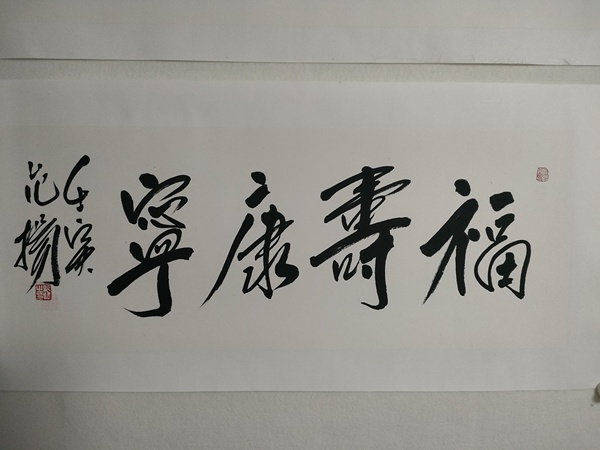 福壽康寧
壬寅
范揚